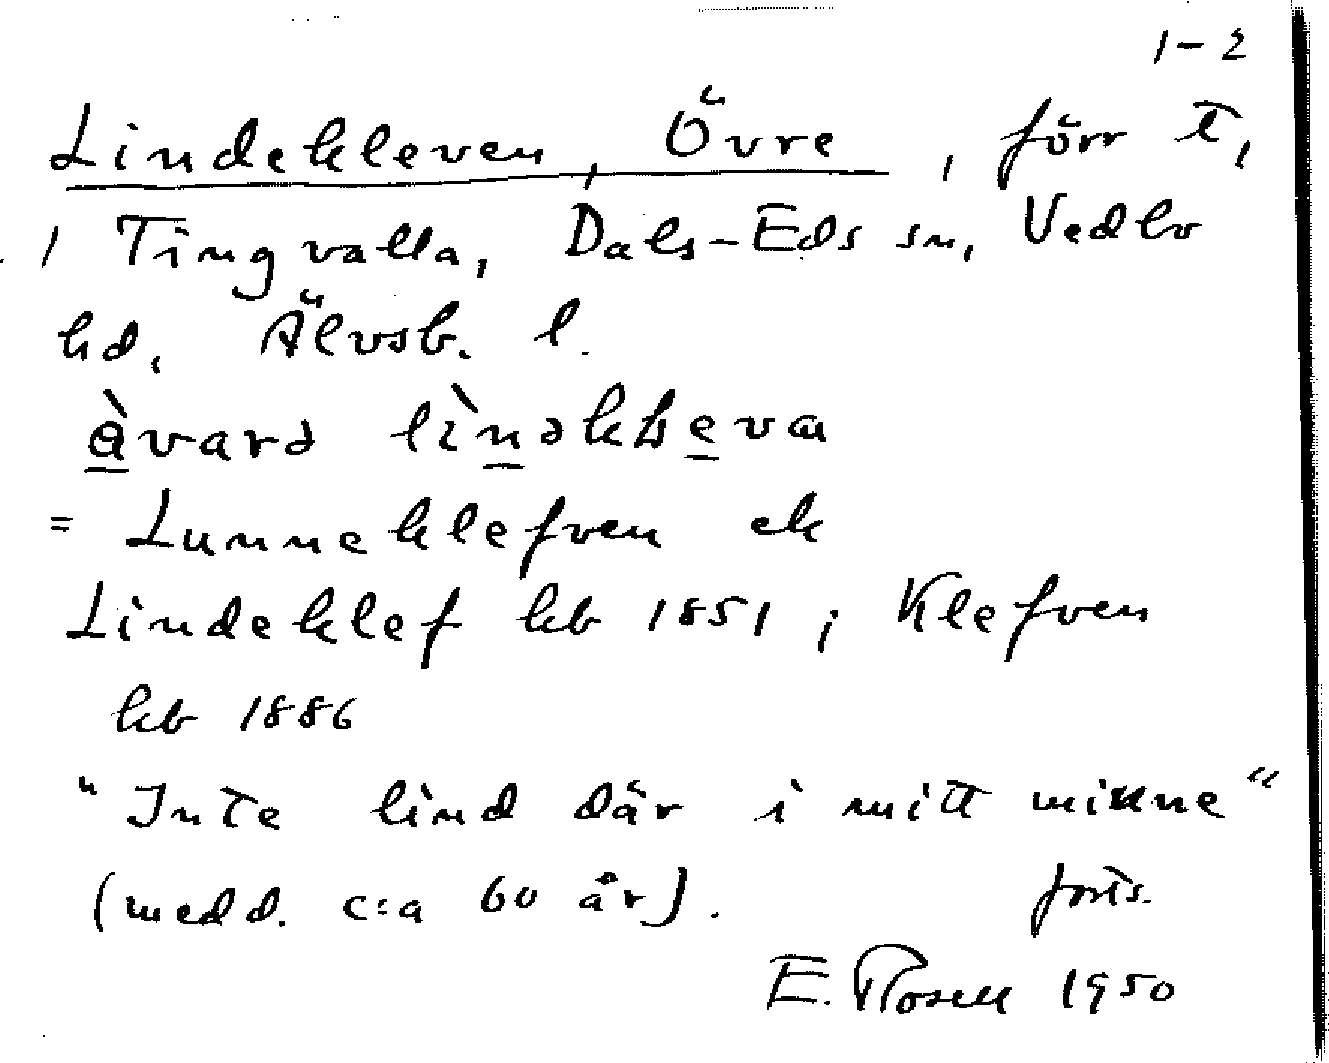 1-2
Lindekleven, Övre, förr t,
/ Tingvalla, Dals-Eds sn, Vedbo
hd, Älvsb. l.
= Lunneklefven ek
Lindeklef kb 1851; Klefven
kb 1886
"Inte lind där i mitt minne"
(medd. c:a 60 år). forts.
E. Rosell 1950